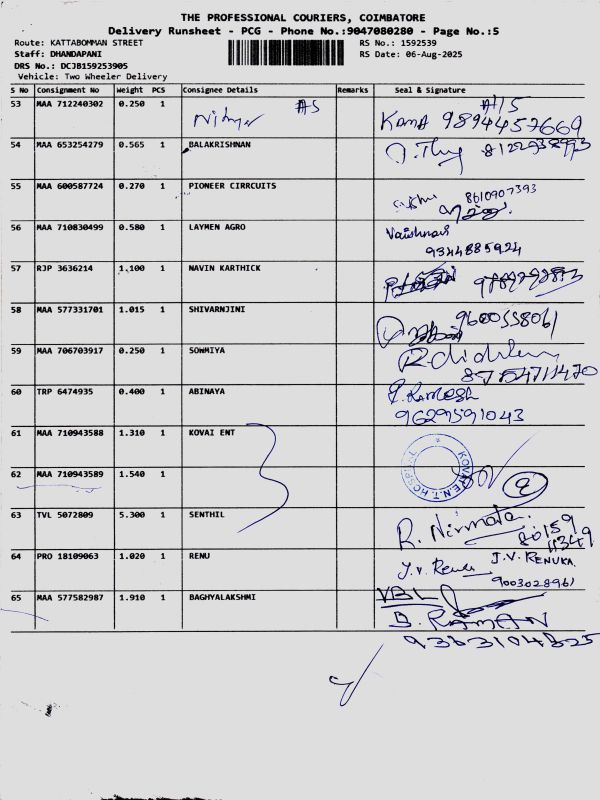 THE PROFESSIONAL COURIERS, COIMBATORE
Delivery Runsheet - PCG - Phone No.:9047080280 - Page No.:5
Route: KATTABOMMAN STREET
RS No.: 1592539
Staff: DHANDAPANI
RS Date: 06-Aug-2025
DRS No.: DCJB159253905
Vehicle: Two Wheeler Delivery
S No Consignment No Weight PCS Consignee Details Remarks Seal & Signature
53 MAA 712240302 0.250 1 9894457669
54 MAA 653254279 0.565 1 BALAKRISHNAN
55 MAA 600587724 0.270 1 PIONEER CIRRCUITS 8610907393
56 MAA 710830499 0.580 1 LAYMEN AGRO Vaishnavi
9344885924
57 RJP 3636214 1.100 1 NAVIN KARTHICK
58 MAA 577331701 1.015 1 SHIVARNJINI 9600558061
59 MAA 706703917 0.250 1 SOWMIYA
8754711470
60 TRP 6474935 0.400 1 ABINAYA
9629591043
61 MAA 710943588 1.310 1 KOVAI ENT KOVAI E.N.T. HOSPITAL
62 MAA 710943589 1.540 1
63 TVL 5072809 5.300 1 SENTHIL R. Nirmala
80159
64 PRO 18109063 1.020 1 RENU J.V. Renu J.V. RENUKA
9003028961
65 MAA 577582987 1.910 1 BAGHYALAKSHMI VBL
B. RAMAN
9363104825